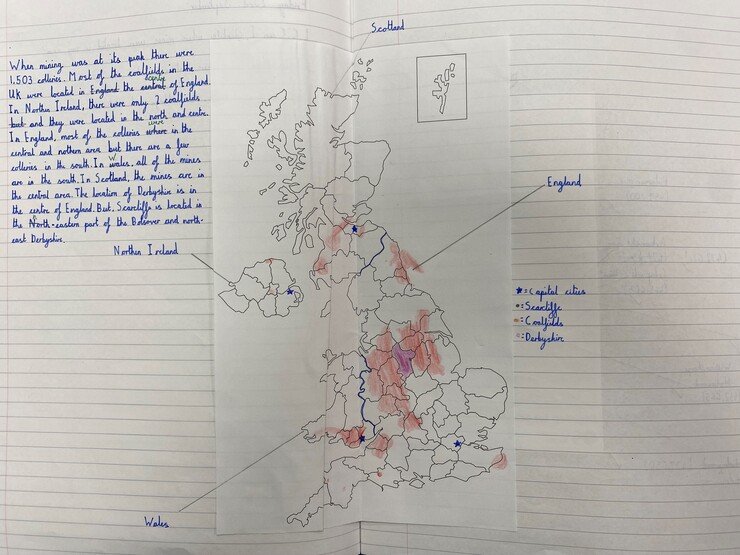 Scotland
When mining was at its peak there were
1,503 colleries. Most of the coalfields in the
UK were located in England the central of England.
In Northen Ireland, there were only 2 coalfields
but and they were located in the north and centre.
In England, most of the colleries where were in the
central and nothern area but there are a few
colleries in the south. In wales, all of the mines
are in the south. In Scotland, the mines are in
the central area. The location of Derbyshire is in
the centre of England. But, Scarcliffe is located in
the North-eastern part of the Bolsover and north-
east Derbyshire.
Northen Ireland
England
= Capital cities
= Scarcliffe
= Coalfields
= Derbyshire
Wales